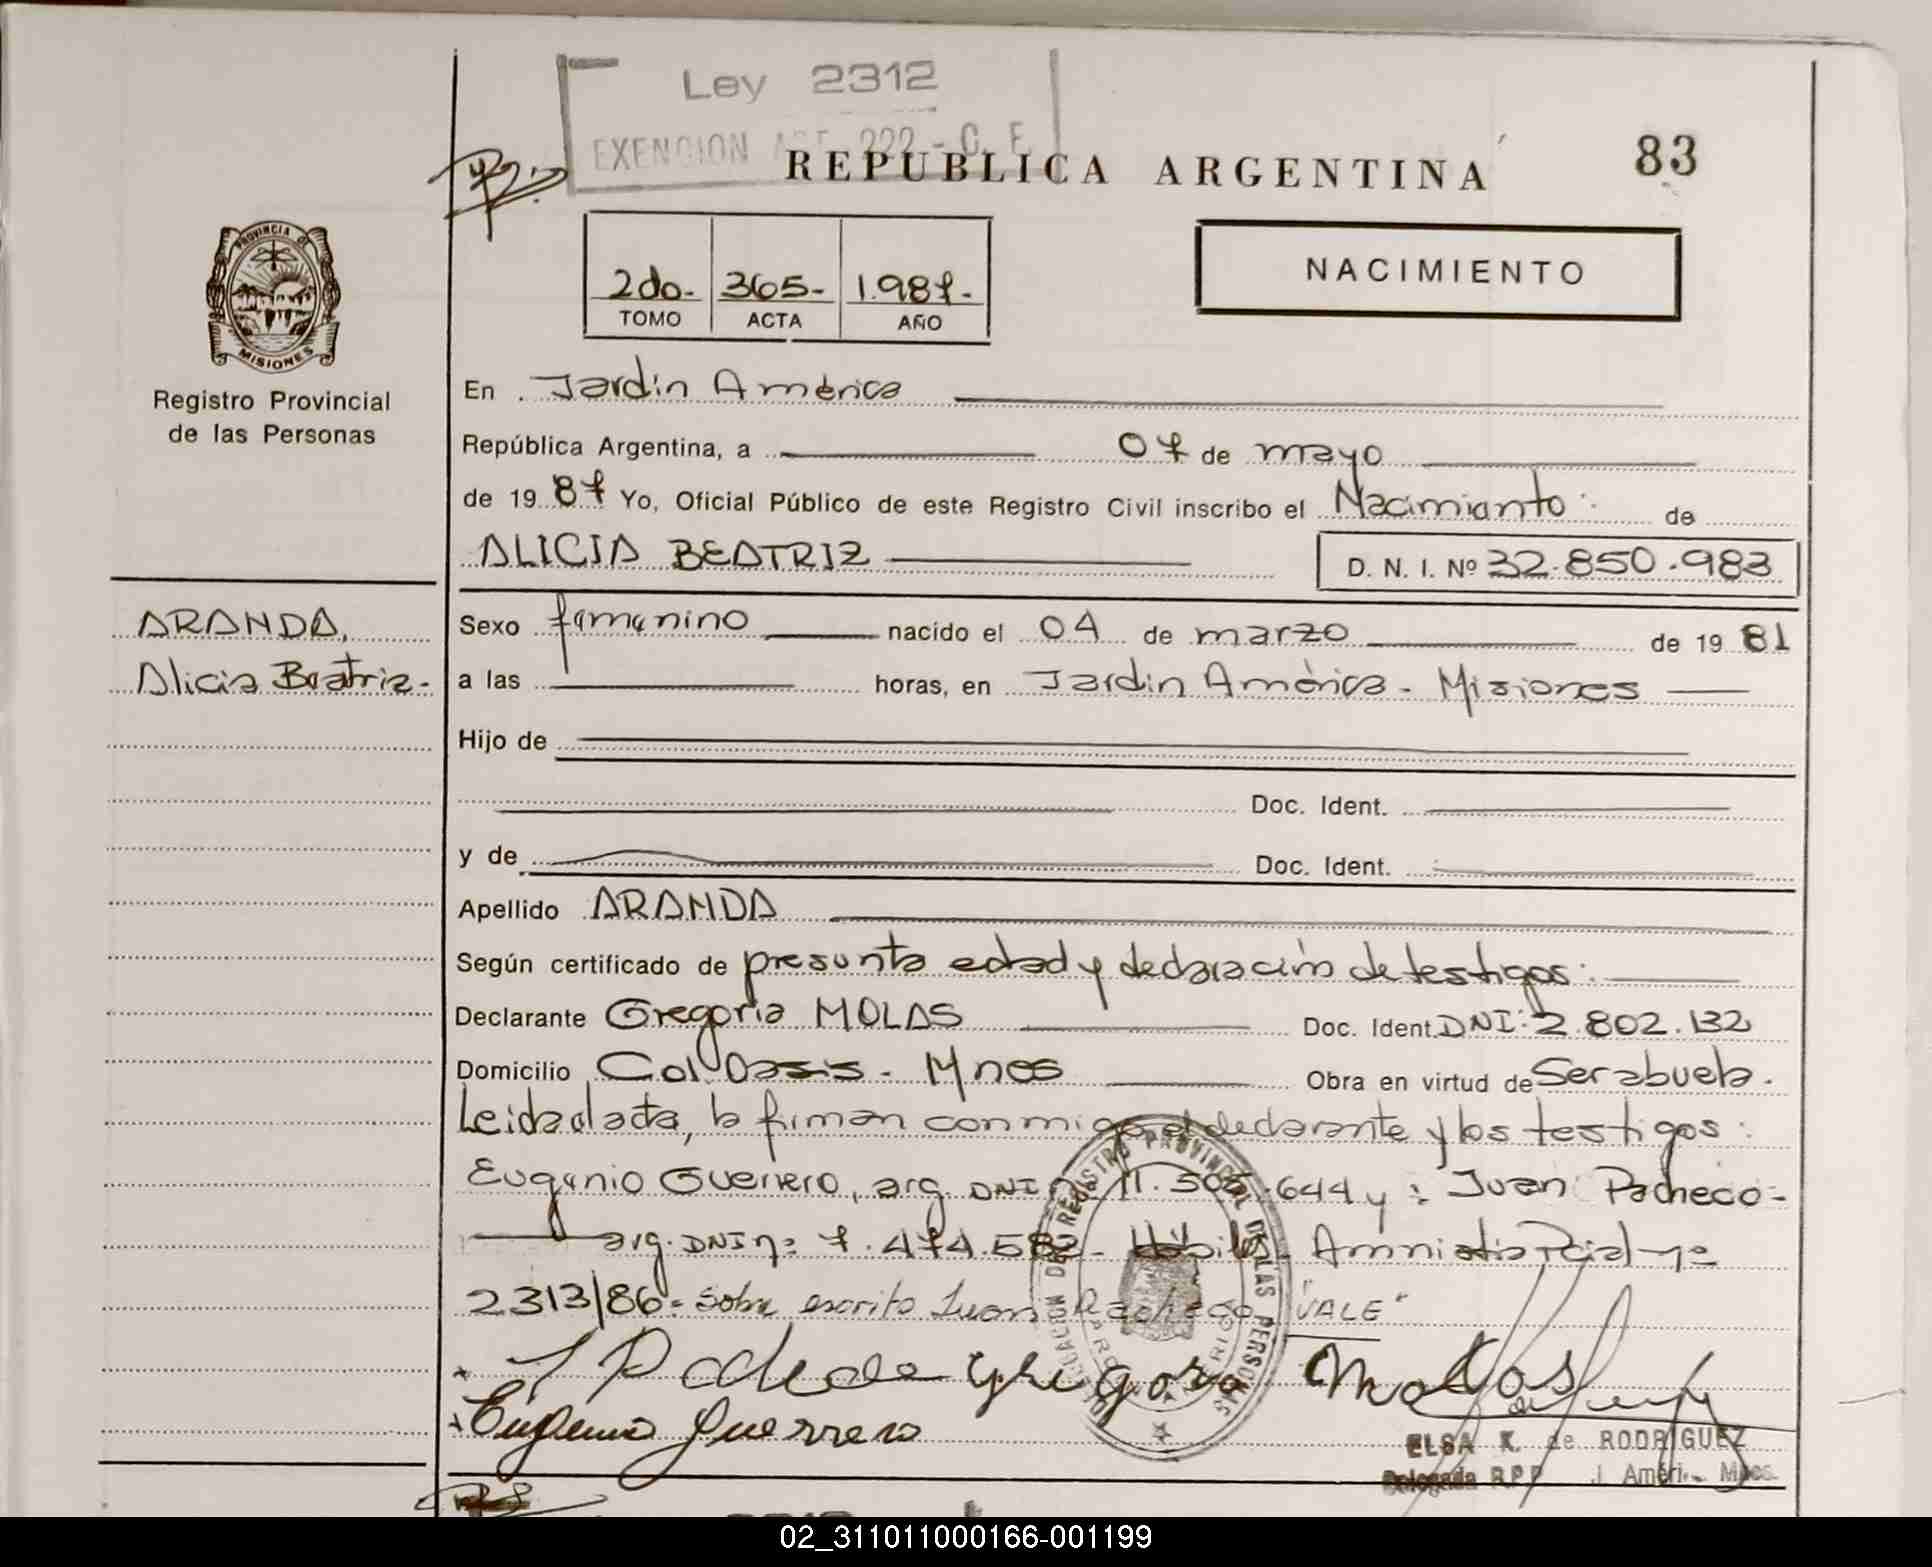 Ley 2312
EXENCION ART 222 - C. F.
REPUBLICA ARGENTINA
83
PROVINCIA DE
MISIONES
Registro Provincial
de las Personas
2do.- 365- 1.987.-
TOMO ACTA AÑO
NACIMIENTO
En Jardin América
República Argentina, a 07 de mayo
de 19 87 Yo, Oficial Público de este Registro Civil inscribo el Nacimiento: de
ALICIA BEATRIZ D. N. I. Nº 32.850.983
ARANDA,
Alicia Beatriz.-
Sexo femenino nacido el 04 de marzo de 19 81
a las horas, en Jardin América - Misiones
Hijo de
Doc. Ident.
y de Doc. Ident.
Apellido ARANDA
Según certificado de presunta edad y declaración de testigos:
Declarante Gregoria MOLAS Doc. Ident. DNI: 2.802.132
Domicilio Col. Oasis - Mnes Obra en virtud de Ser abuela.
Leida el acta, la firman conmigo el declarante y los testigos:
Eugenio Guerrero, arg. DNI 11.505.644 y : Juan Pacheco-
arg. DNI nº 7.474.582- Hábiles- Amnistia Pcial nº
2313/86- Sobre escrito Juan Pacheco "VALE"
J Pacheco Gregoria Molas
Eugenio Guerrero
DELEGACION DEL REGISTRO PROVINCIAL DE LAS PERSONAS
ELSA K. de RODRIGUEZ
Delegada R.P.P. J. Améri. Mnes.
02_311011000166-001199